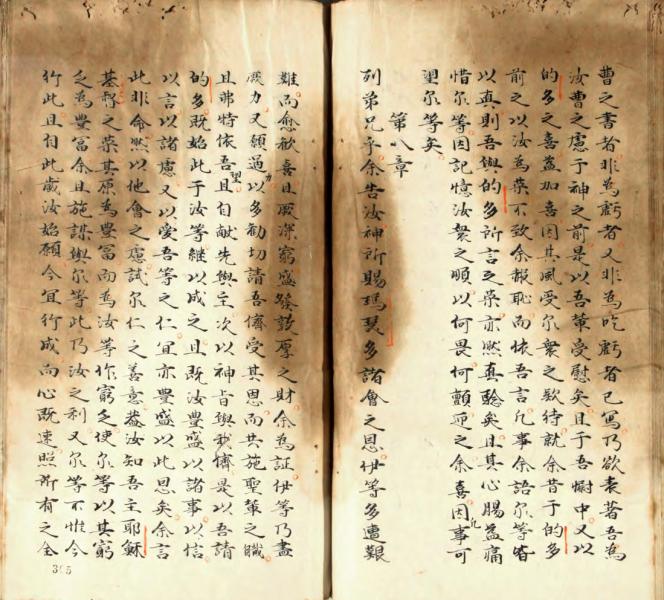 曹之書者非為虧者又非為吃虧者已寫乃欲表著吾為
汝曹之慮于神之前是以吾輩受慰矣且于吾慰中又以
的多之喜益加喜因其風受尔衆之欵待就余昔于的多
前之以汝為榮不致余報恥而依吾言凡事余語尔等皆
以真則吾與的多所言之榮亦然真騐矣且其心腸益痛
惜尔等因記憶汝衆之順以何畏何顫迎之余喜因凡事可
望尔等矣
第八章
列弟兄乎余告汝神所賜瑪瑟多諸會之恩伊等多遭艱
難而愈歡喜且厥深窮盛發敦厚之財余為証伊等乃盡
厥力又願過力以多勸切請吾儕受其恩而共施聖輩之職
且弗特依吾望且自献先與主次以神旨與我儕是以吾請
的多既始此于汝等継以成之且既汝豊盛以諸事以信
以言以諸慮又以愛吾等之仁宜亦豊盛以此恩矣余言
此非命然以他會之慮試尔仁之善意葢汝知吾主耶穌
基督之榮其原為豊富而為汝等作窮乏使尔等以其窮
乏為豊富余且施謀與尔等此乃汝之利又尔等不惟今
行此且自此歲汝始願今宜行成而心既速照所有之全
365